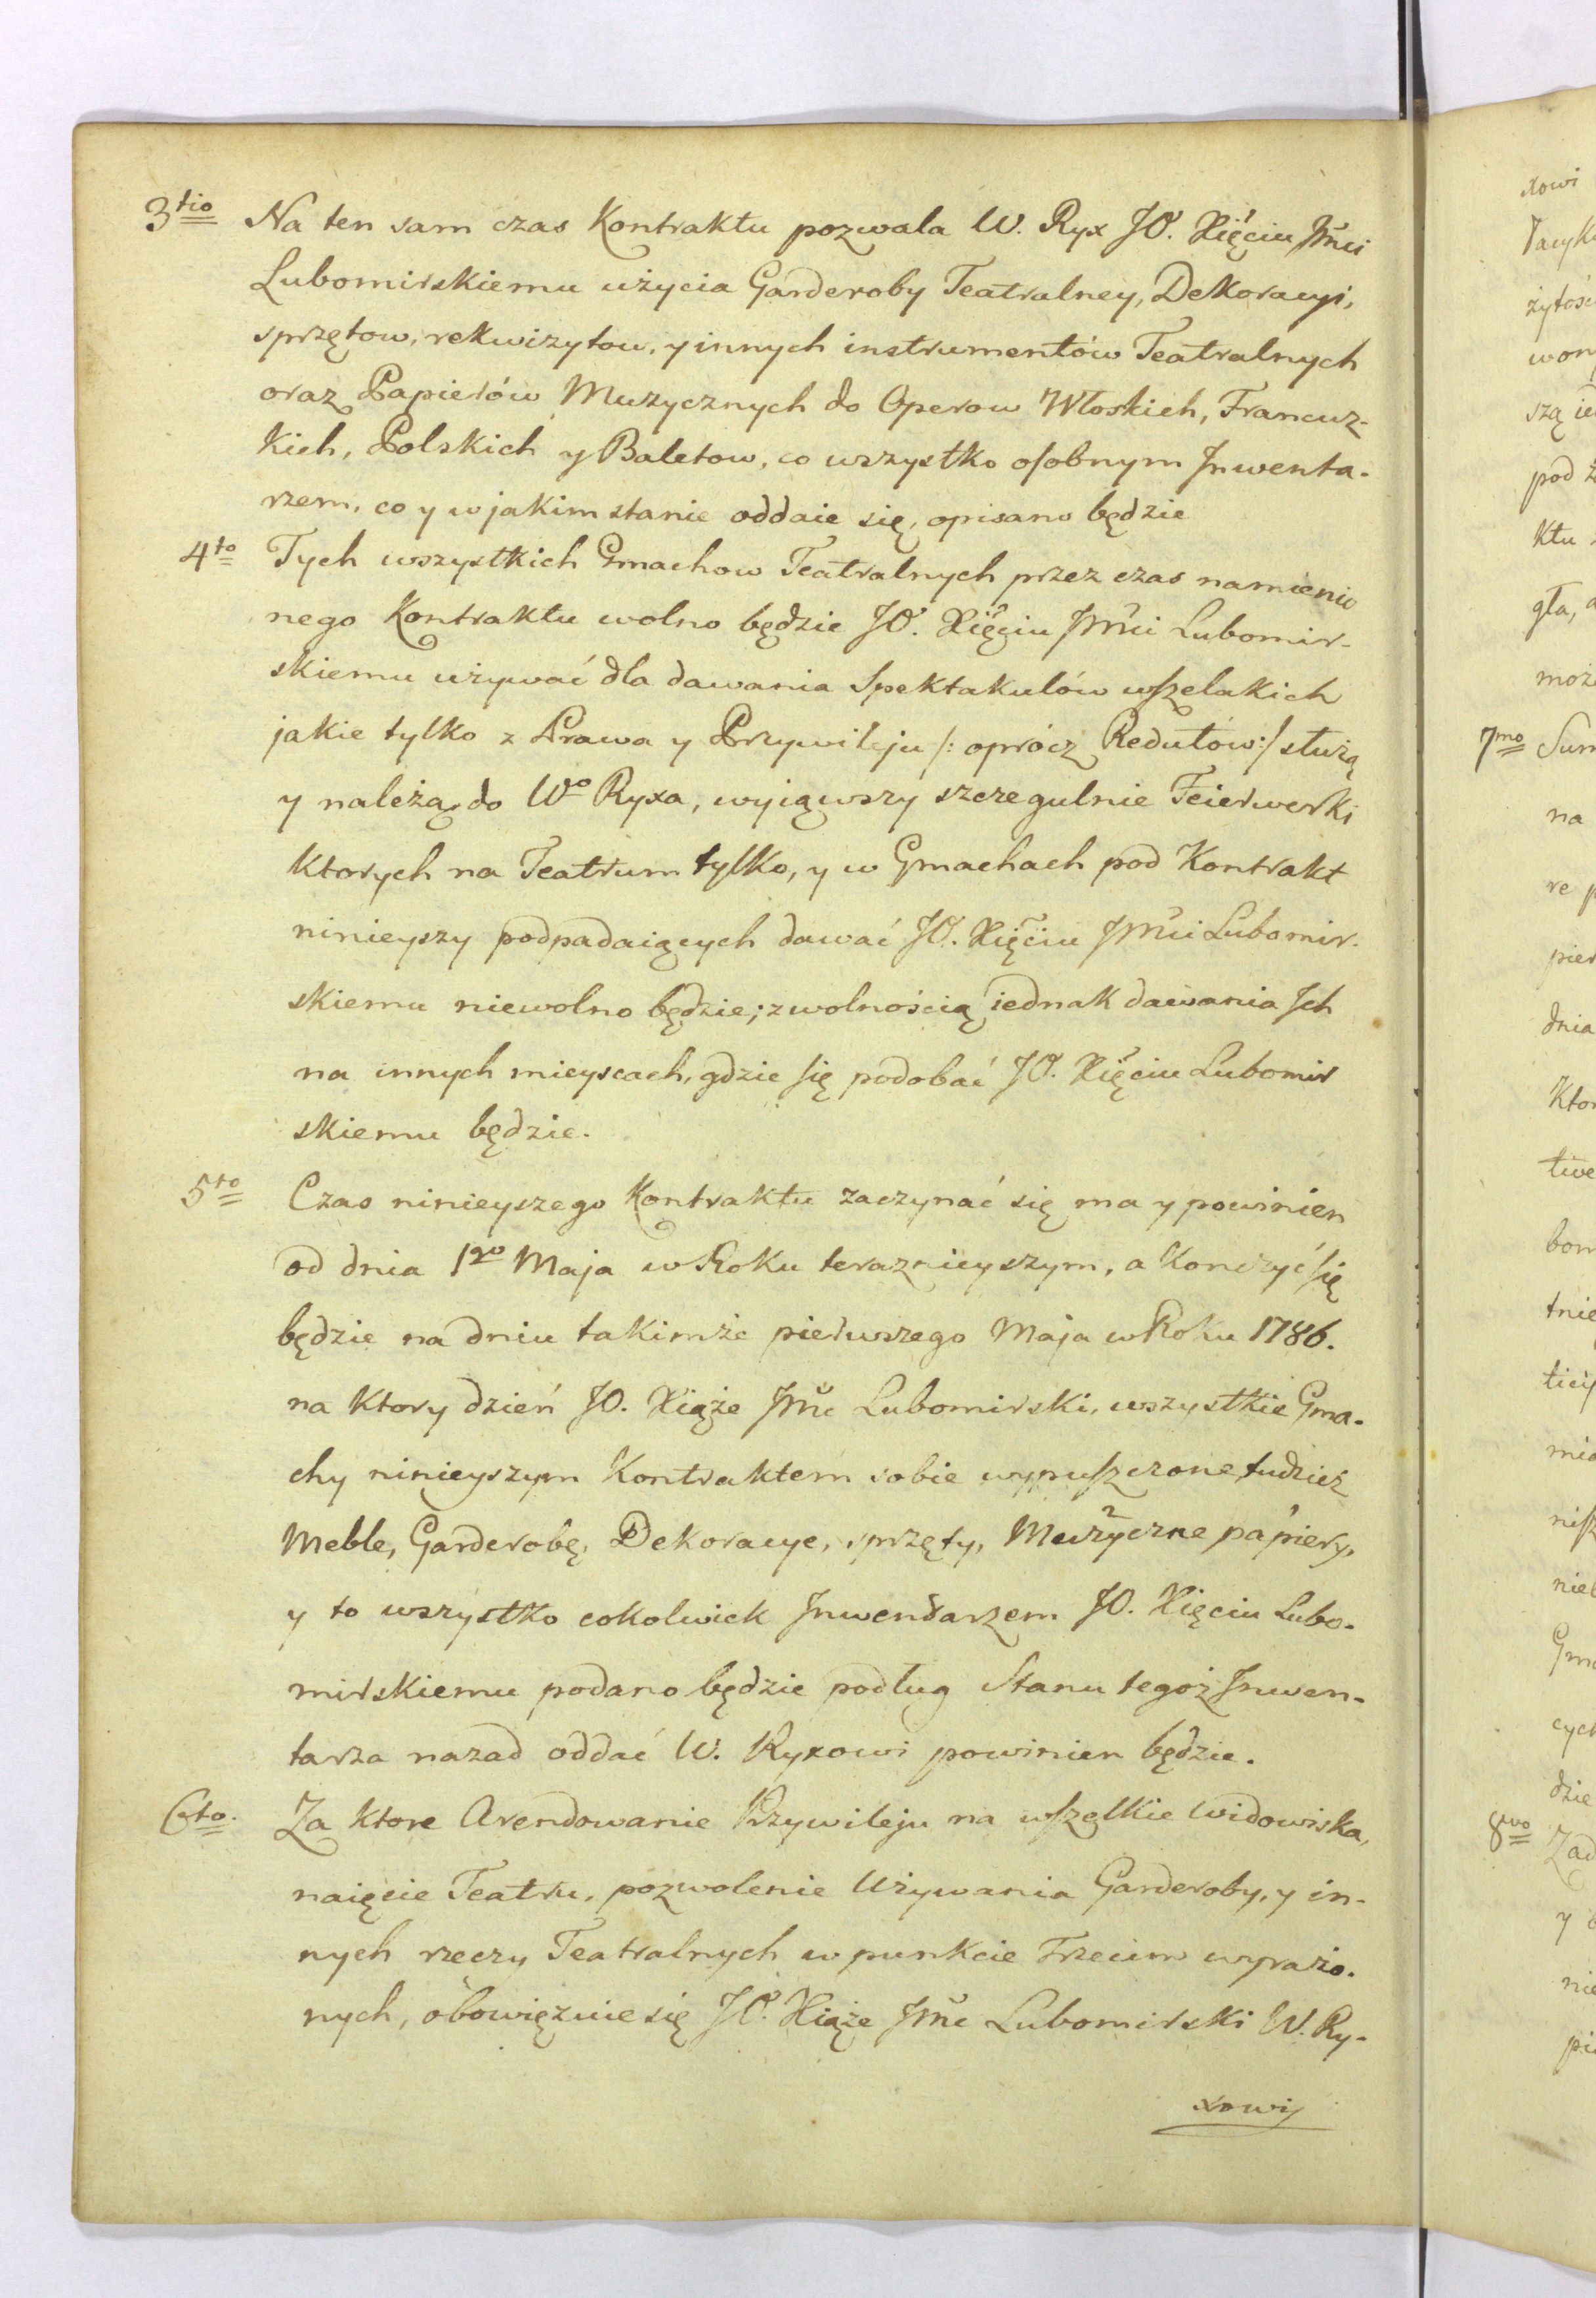 3tio Na ten sam czas Kontraktu pozwala W. Ryx JO. Xięciu Jmci
Lubomirskiemu użycia Garderoby Teatralney, Dekoracyi,
sprzętow, rekwizytow, y innych instrumentów Teatralnych
oraz Papierów Muzycznych do Operow Włoskich, Francuz-
kich, Polskich y Baletow, co wszystko osobnym Inwenta-
rzem, co y w jakim stanie oddaie się, opisano będzie
4to Tych wszystkich Gmachow Teatralnych przez czas namienio
nego Kontraktu wolno będzie JO. Xięciu Jmci Lubomir-
skiemu używać dla dawania Spektakulów wszelakich
jakie tylko z Prawa y Przywileju /: oprócz Redutów :/ służą
y należą do Wo Ryxa, wyiąwszy szczegulnie Feierwerki
ktorych na Teatrum tylko, y w Gmachach pod Kontrakt
ninieyszy podpadaiących dawać JO. Xięciu Jmci Lubomir-
skiemu niewolno będzie; z wolnością iednak dawania Ich
na innych mieyscach, gdzie się podobać JO. Xięciu Lubomir
skiemu będzie.
5to Czas ninieyszego Kontraktu zaczynać się ma y powinien
od dnia 1go Maja w Roku teraznieyszym, a Konczyć się
będzie na dniu takimże pierwszego Maja w Roku 1786.
na ktory dzień JO. Xiąże Jmc Lubomirski, wszystkie Gma-
chy ninieyszym Kontraktem sobie wypuszczone tudzież
Meble, Garderobę, Dekoracye, sprzęty, Muzyczne papiery,
y to wszystko cokolwiek Inwentarzem JO. Xięciu Lubo-
mirskiemu podano będzie podług Stanu tegoż Inwen-
tarza nazad oddać W. Ryxowi powinien będzie.
6to. Za ktore Arendowanie Przywileju na wszelkie Widowiska,
naięcie Teatru, pozwolenie Używania Garderoby, y in-
nych rzeczy Teatralnych w punkcie Trzecim wyrażo-
nych, obowięzuie się JO. Xiąże Jmc Lubomirski W. Ry-
xowi
xowi
żytośc
pod
ktu
gła,
7mo Sum
na
re
pier
dnia
Ktor
bom
tnie
Gma
cych
dzie
8vo Zad
y
nie